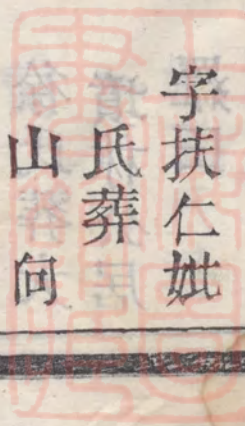 字扶仁妣
氏葬
山向